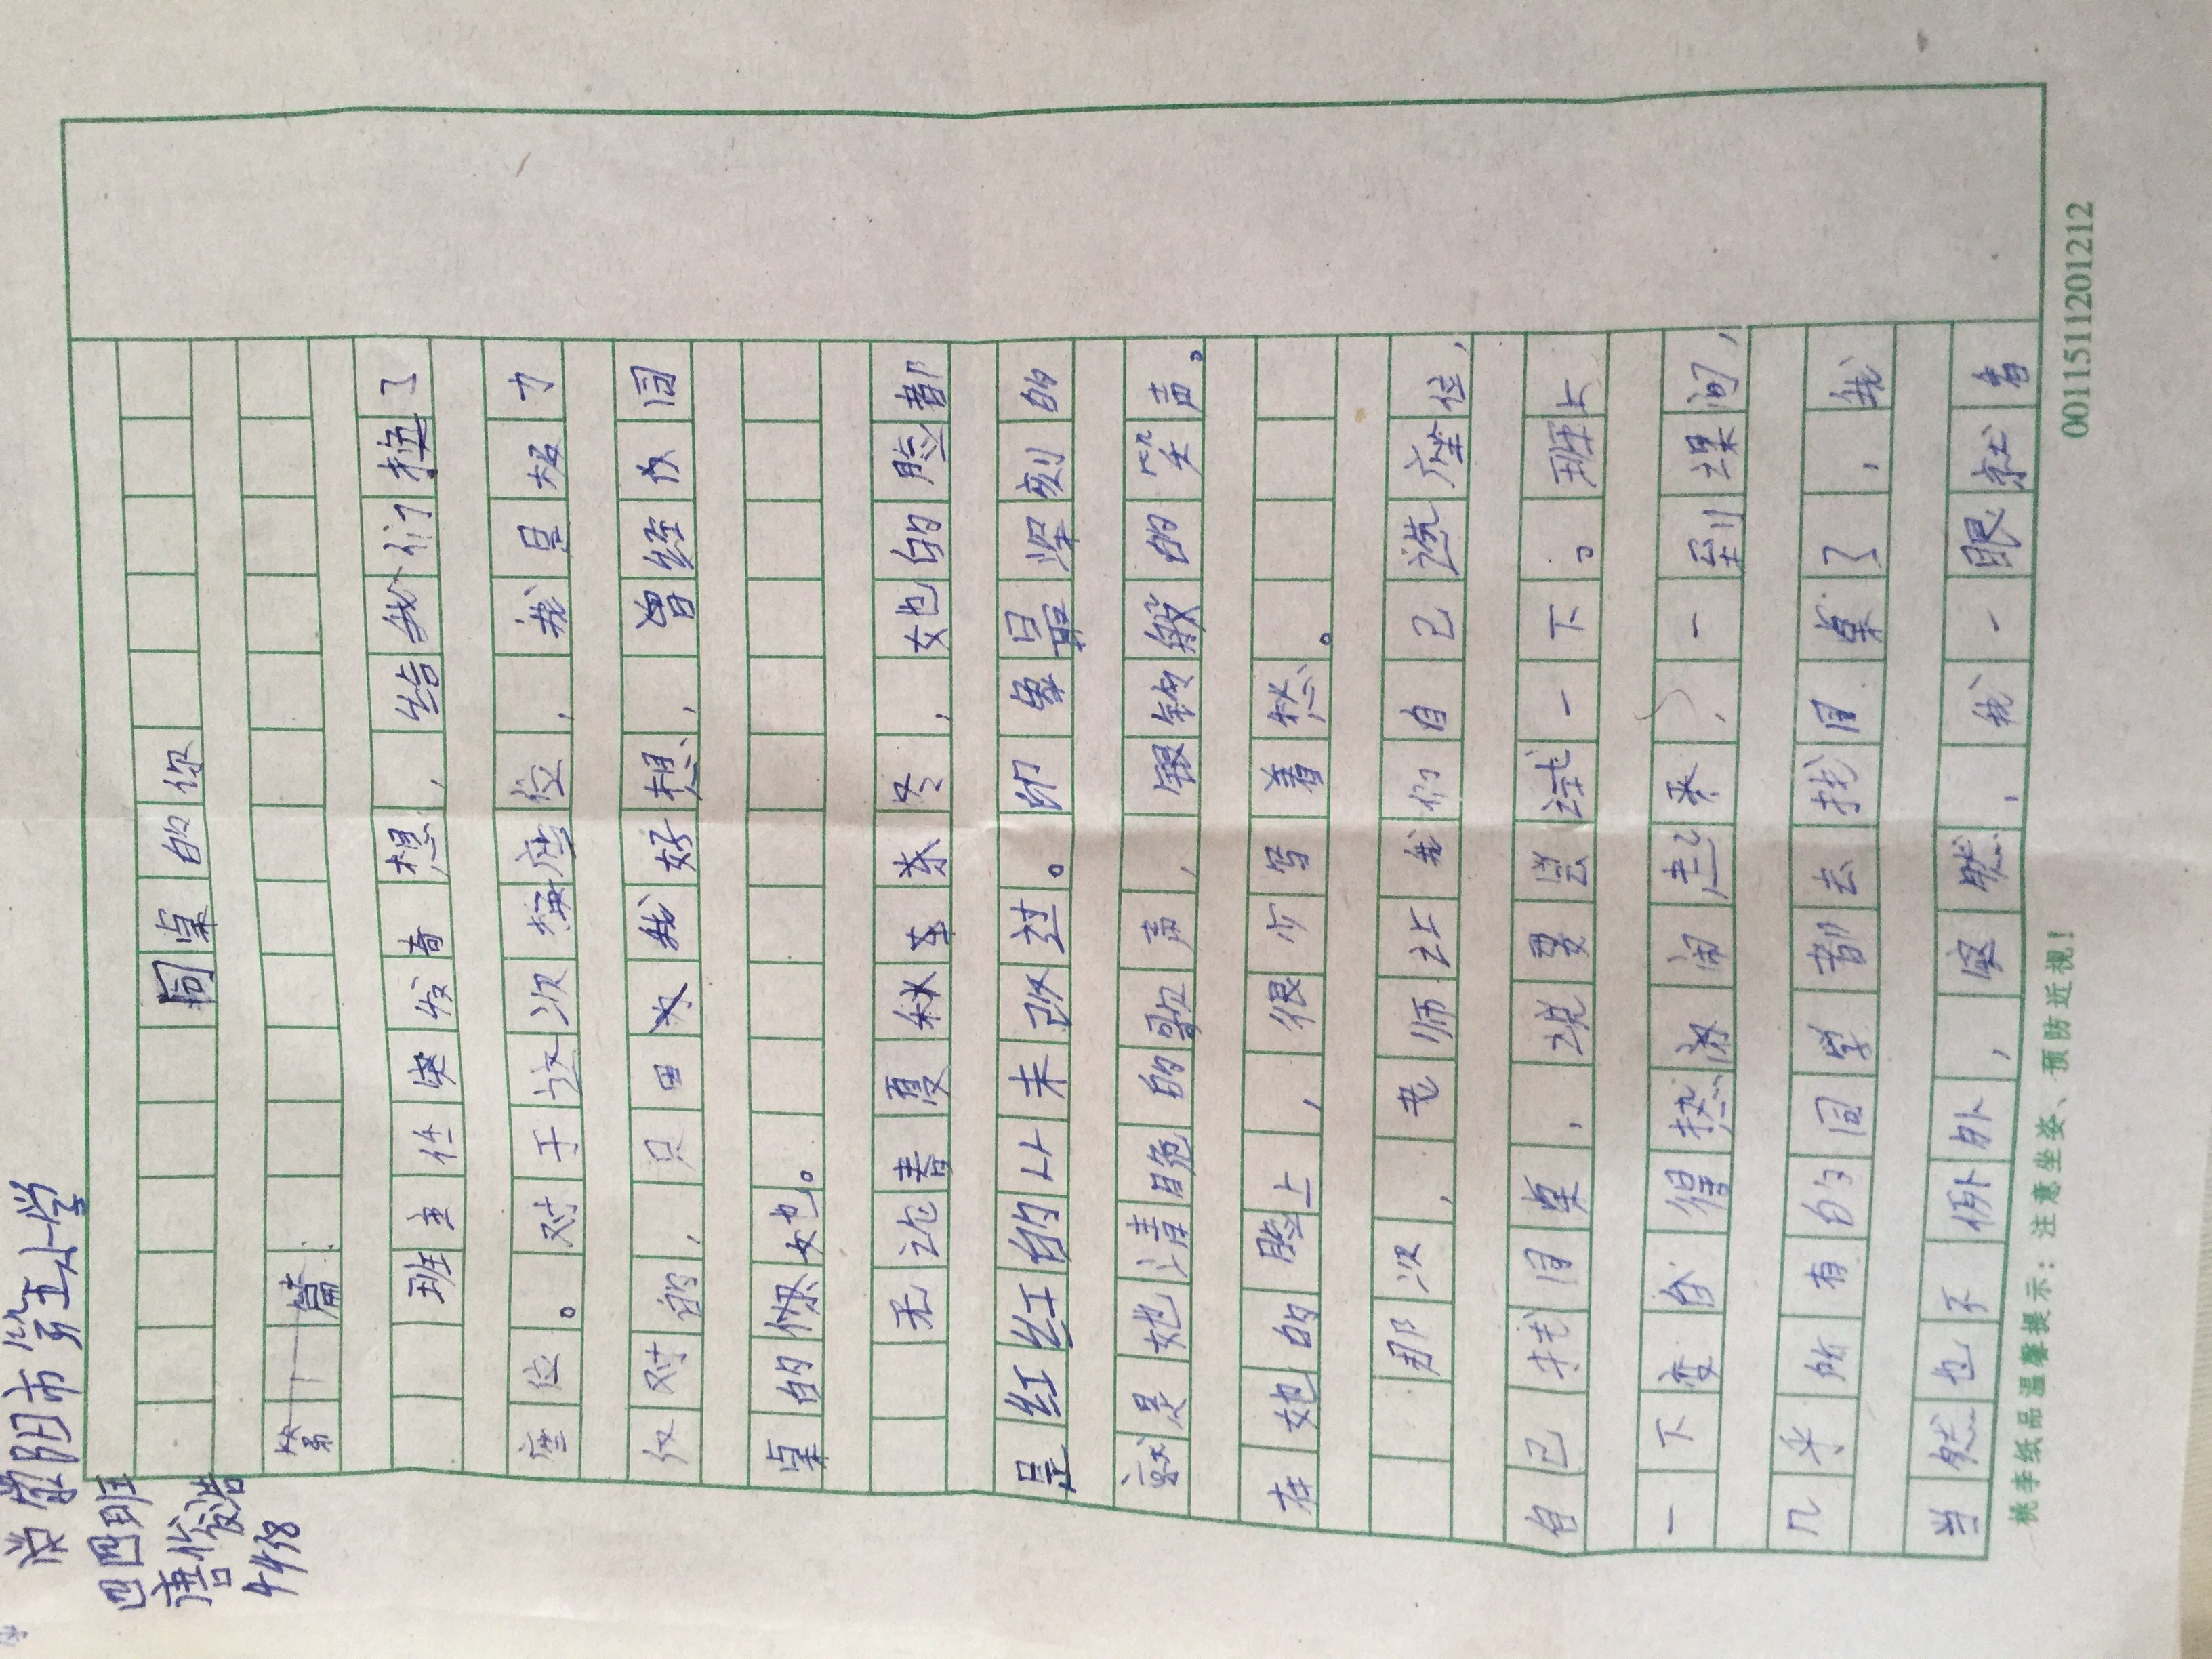 荥阳市第五小学
四四班
唐俊浩
4418
同桌的你
第一篇
班主任突发奇想，给我们换了
座位。对于这次换座位，我是极力
反对的，只因为我好想，曾经我同
桌的你她。
无论春夏秋冬，她的脸都
是红红的从未改过。印象最深刻的
就是她清脆的歌声，银铃般的笑声。
在她的脸上，很少写着愁。
那次，老师让我们自己选座位，
自己找同桌，说要尝试一下。班上
一下变成得热闹起来，一到课间，
几乎所有的同学都去找同桌了，我
当然也不例外，突然，我一眼就看
桃李纸品温馨提示：注意坐姿、预防近视！
001151120 1212